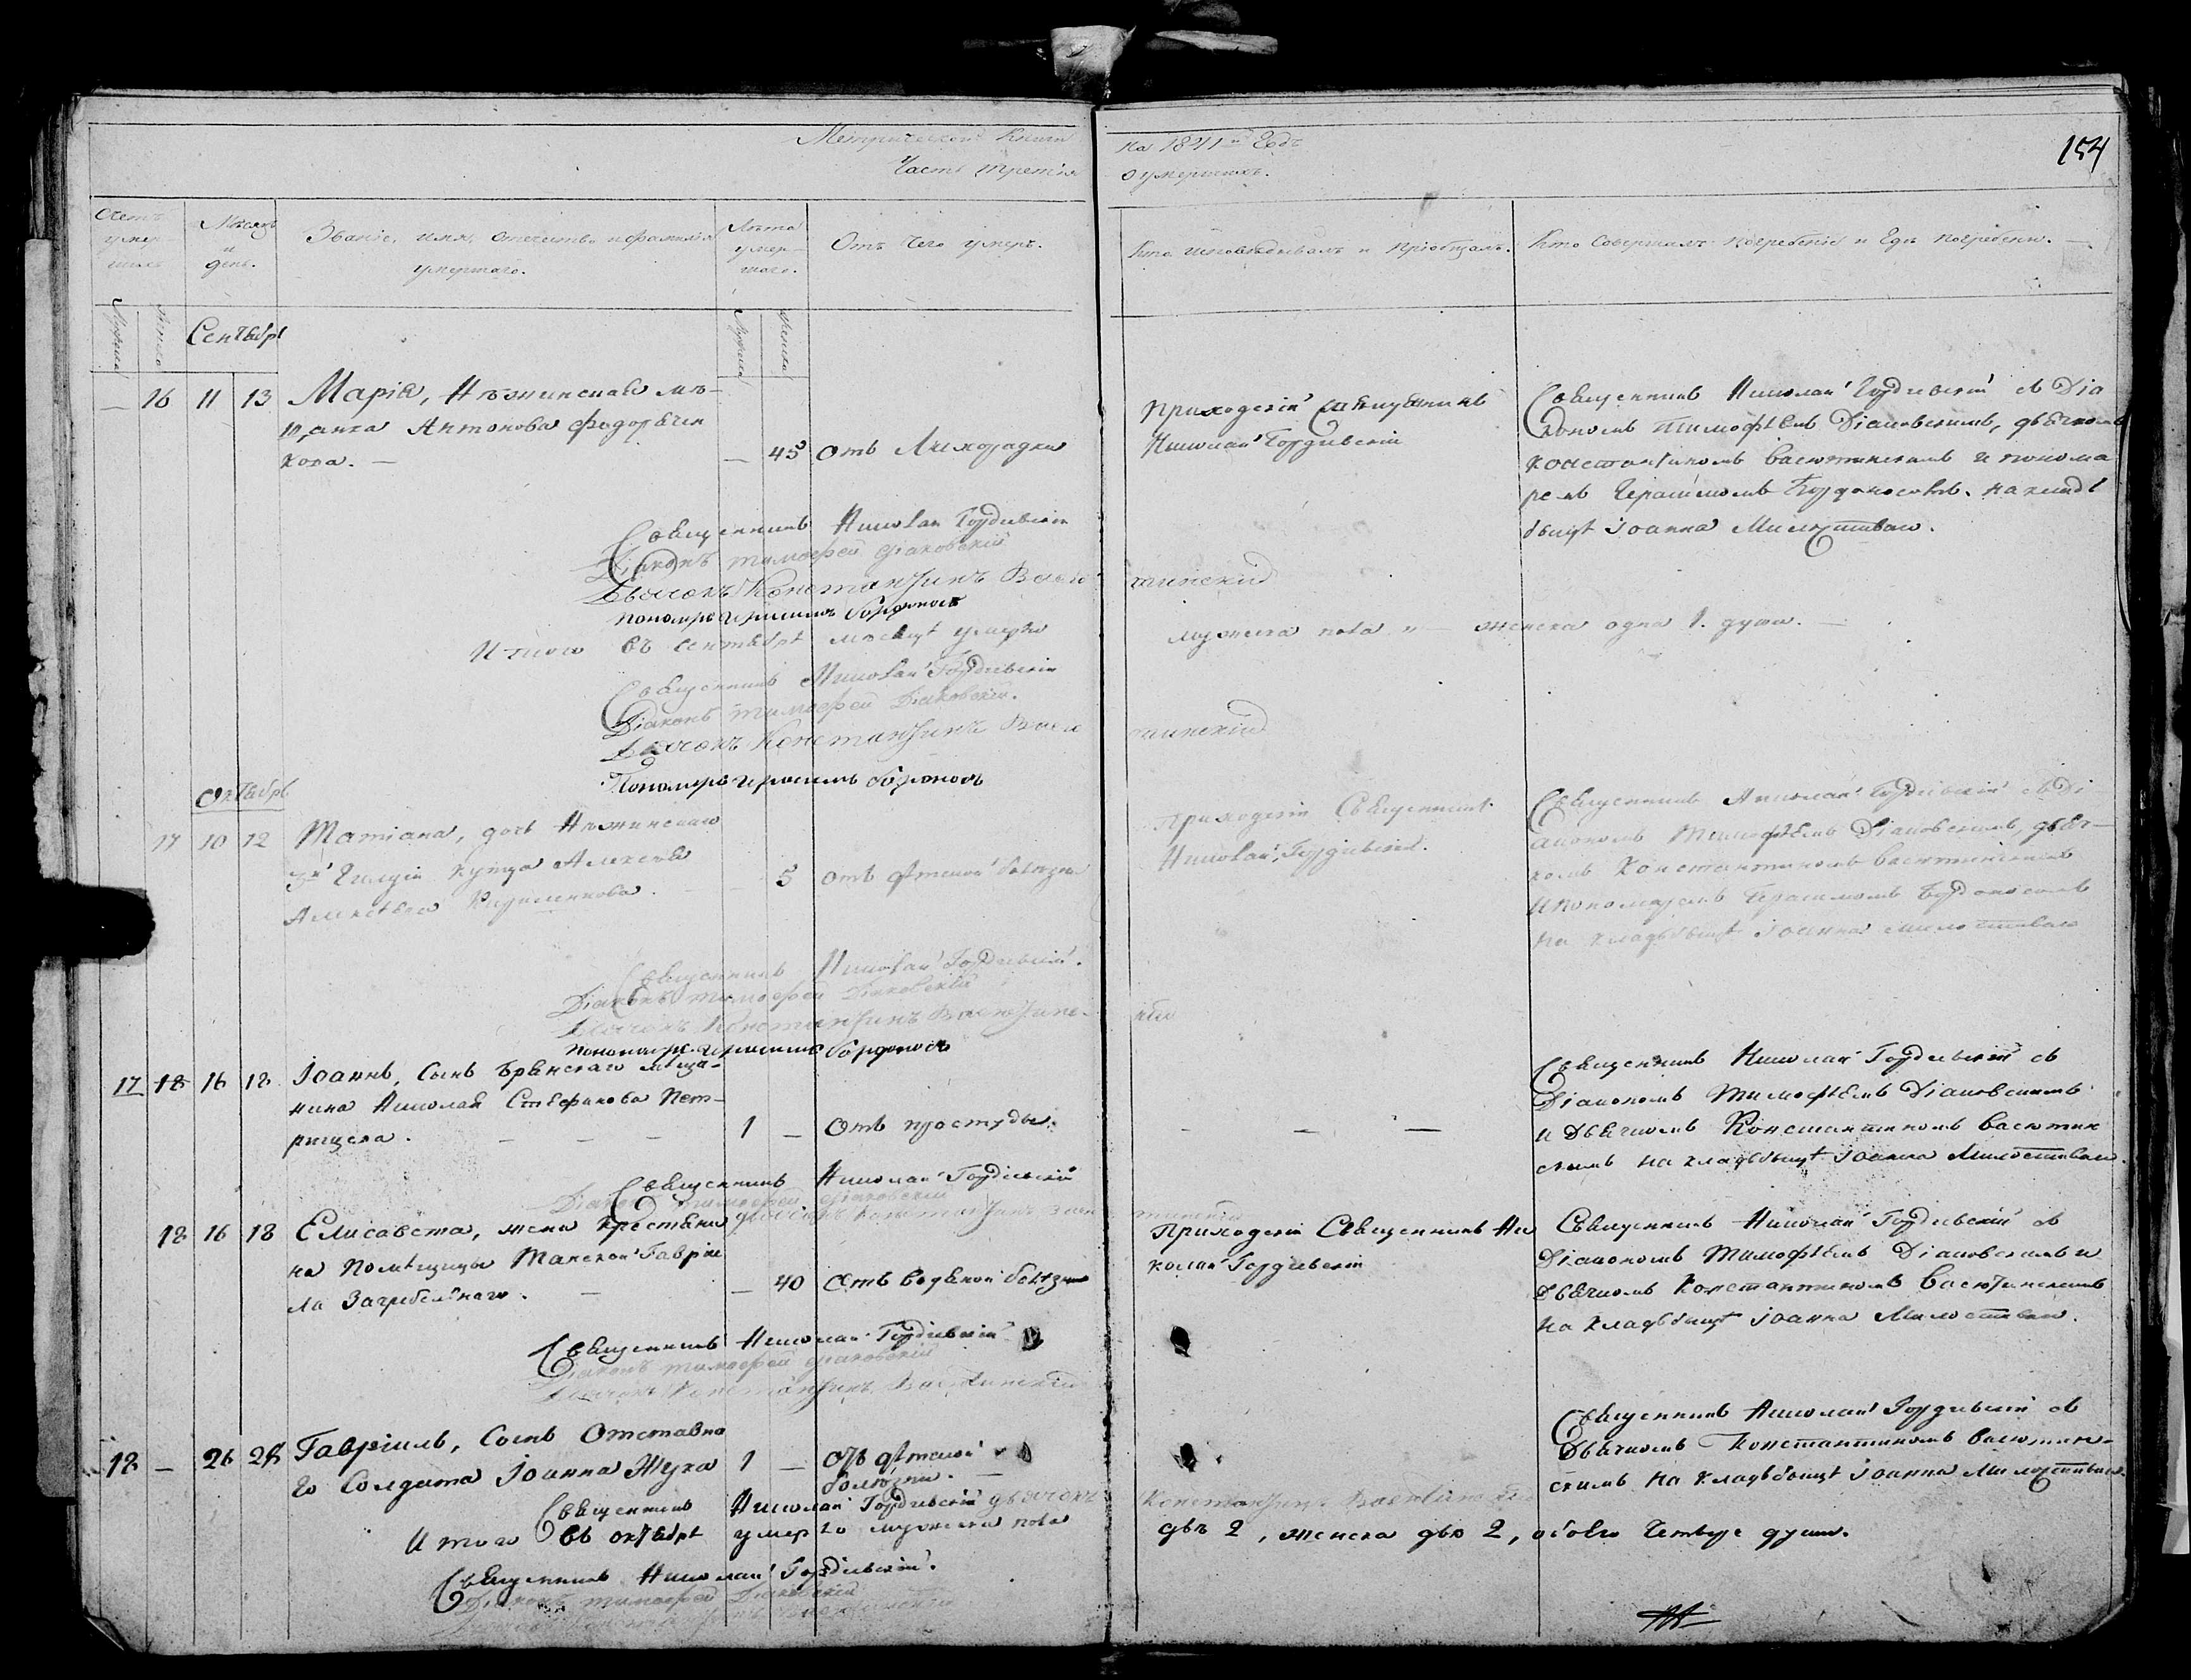 Метрической Книги на 1841й Годъ
Часть третія о умершихъ.
154
Счетъ умер-
шихъ
Мѣсяцъ
и
день.
Званіе, имя, отечество и фамилія
умершаго.
Лѣта
умер-
шаго.
Отъ чего умеръ.
Кто исповѣдывалъ и пріобщалъ.
Кто совершалъ погребеніе и гдѣ погребены.
Сентябрь
— 16 11 13
Марія, Нѣжинская мѣ-
щанка Антонова Федорѣен
кова. —
— 45
Отъ Лихорадки
Приходскій Священникъ
Николай Гордіевскій
Священникъ Николай Гордіевскій съ Діа
кономъ Тимофѣемъ Діаковскимъ, дьячкомъ
Константиномъ Васютинскимъ и понома
ремъ Герасимомъ на кладь
бищѣ Іоанна Милостиваго.
Священникъ Николай Гордіевскій
Діаконъ Тимофей Діаковскій
Дьячокъ Константинъ Васютинскій
Пономарь Герасимъ
Итого въ Сентябрѣ мѣсяцѣ умерло мужеска пола „ — женска одна 1. душа. —
Священникъ Николай Гордіевскій
Діаконъ Тимофей Діаковскій.
Дьячокъ Константинъ Васютинскій
Пономарь Герасимъ
Октябрь
17 10 12
Татіана, дочь Нѣжинскаго
3й Гилдіи купца Алексѣя
Алексѣева
— 5
отъ дѣтской болѣзни
Приходскій Священникъ
Николай Гордіевскій.
Священникъ Николай Гордіевскій съ Ді-
акономъ Тимофѣемъ Діаковскимъ, дьяч-
комъ Константиномъ Васютинскимъ
и пономаремъ Герасимомъ
на кладьбищѣ Іоанна Милостиваго
Священникъ Николай Гордіевскій.
Діаконъ Тимофей Діаковскій
Дьячокъ Константинъ Васютинскій
Пономарь Герасимъ
17 18 16 18
Іоаннъ, Сынъ Брянскаго мѣща-
нина Николая Стефанова Пет-
рищева. — — —
1 —
Отъ простуды.
— — —
Священникъ Николай Гордіевскій съ
Діакономъ Тимофѣемъ Діаковскимъ
и Дьячкомъ Константиномъ Васютин
скимъ на кладьбищѣ Іоанна Милостиваго.
Священникъ Николай Гордіевскій
Діаконъ Тимофей Діаковскій
Дьячокъ Константинъ Васютинскій
18 16 18
Елисавета, жена крестьяни
на Помѣщицы Танской Гаврiи
ла Загребельнаго. —
— 40
Отъ водяной болѣзни
Приходскій Священникъ Ни
колай Гордіевскій
Священникъ Николай Гордіевскій съ
Діакономъ Тимофѣемъ Діаковскимъ и
Дьячкомъ Константиномъ Васютинскимъ
на кладьбищѣ Іоанна Милостиваго.
Священникъ Николай Гордіевскій
Діаконъ Тимофей Діаковскій
Дьячокъ Константинъ Васютинскій
18 — 26 28
Гавріилъ, Сынъ Отставна
го Солдата Іоанна Жука
1 —
Отъ дѣтской
болѣзни. —
Священникъ Николай Гордіевскій съ
Дьячкомъ Константиномъ Васютин-
скимъ на кладьбищѣ Іоанна Милостиваго.
Священникъ Николай Гордіевскій Дьячокъ Константинъ Васютинскій
Итого въ октябрѣ умерло мужеска пола двѣ 2, женска двѣ 2, обоего четыре души.
Священникъ Николай Гордіевскій.
Діаконъ Тимофей Діаковскій